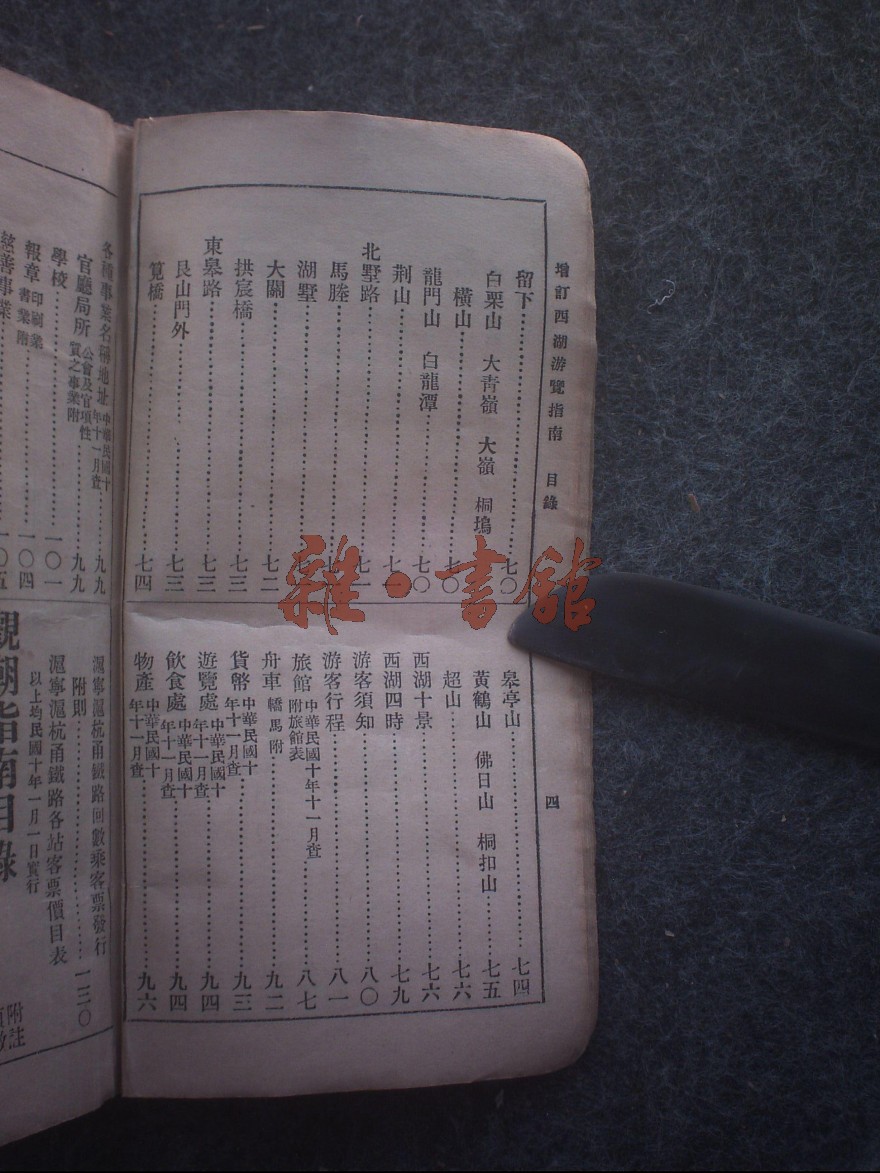 增訂西湖游覽指南 目錄 四
留下 七〇
白栗山 大青嶺 大嶺 桐塢
橫山 七〇
龍門山 白龍潭 七〇
荆山
北墅路
馬塍
湖墅
大關 七二
拱宸橋 七三
東皋路 七三
艮山門外 七三
筧橋 七四
皋亭山 七四
黃鶴山 佛日山 桐扣山 七五
超山 七六
西湖十景 七六
西湖四時 七九
游客須知 八〇
游客行程 八一
旅館 中華民國十年十一月查 附旅館表 八七
舟車 轎馬附 九二
貨幣 中華民國十年十一月查 九三
遊覽處 中華民國十年十一月查 九四
飲食處 中華民國十年十一月查 九四
物產 中華民國十年十一月查 九六
各種事業名稱地址 中華民國十年十一月查 九九
官廳局所 公會及官項性質之事業附 九九
學校 一〇一
報章 印刷業書業附 一〇四
慈善事業 一〇五
滬寧滬杭甬鐵路回數乘客票發行
附則 一三〇
滬寧滬杭甬鐵路各站客票價目表
以上均民國十年一月一日實行
觀潮指南目錄
附註
雜·書館